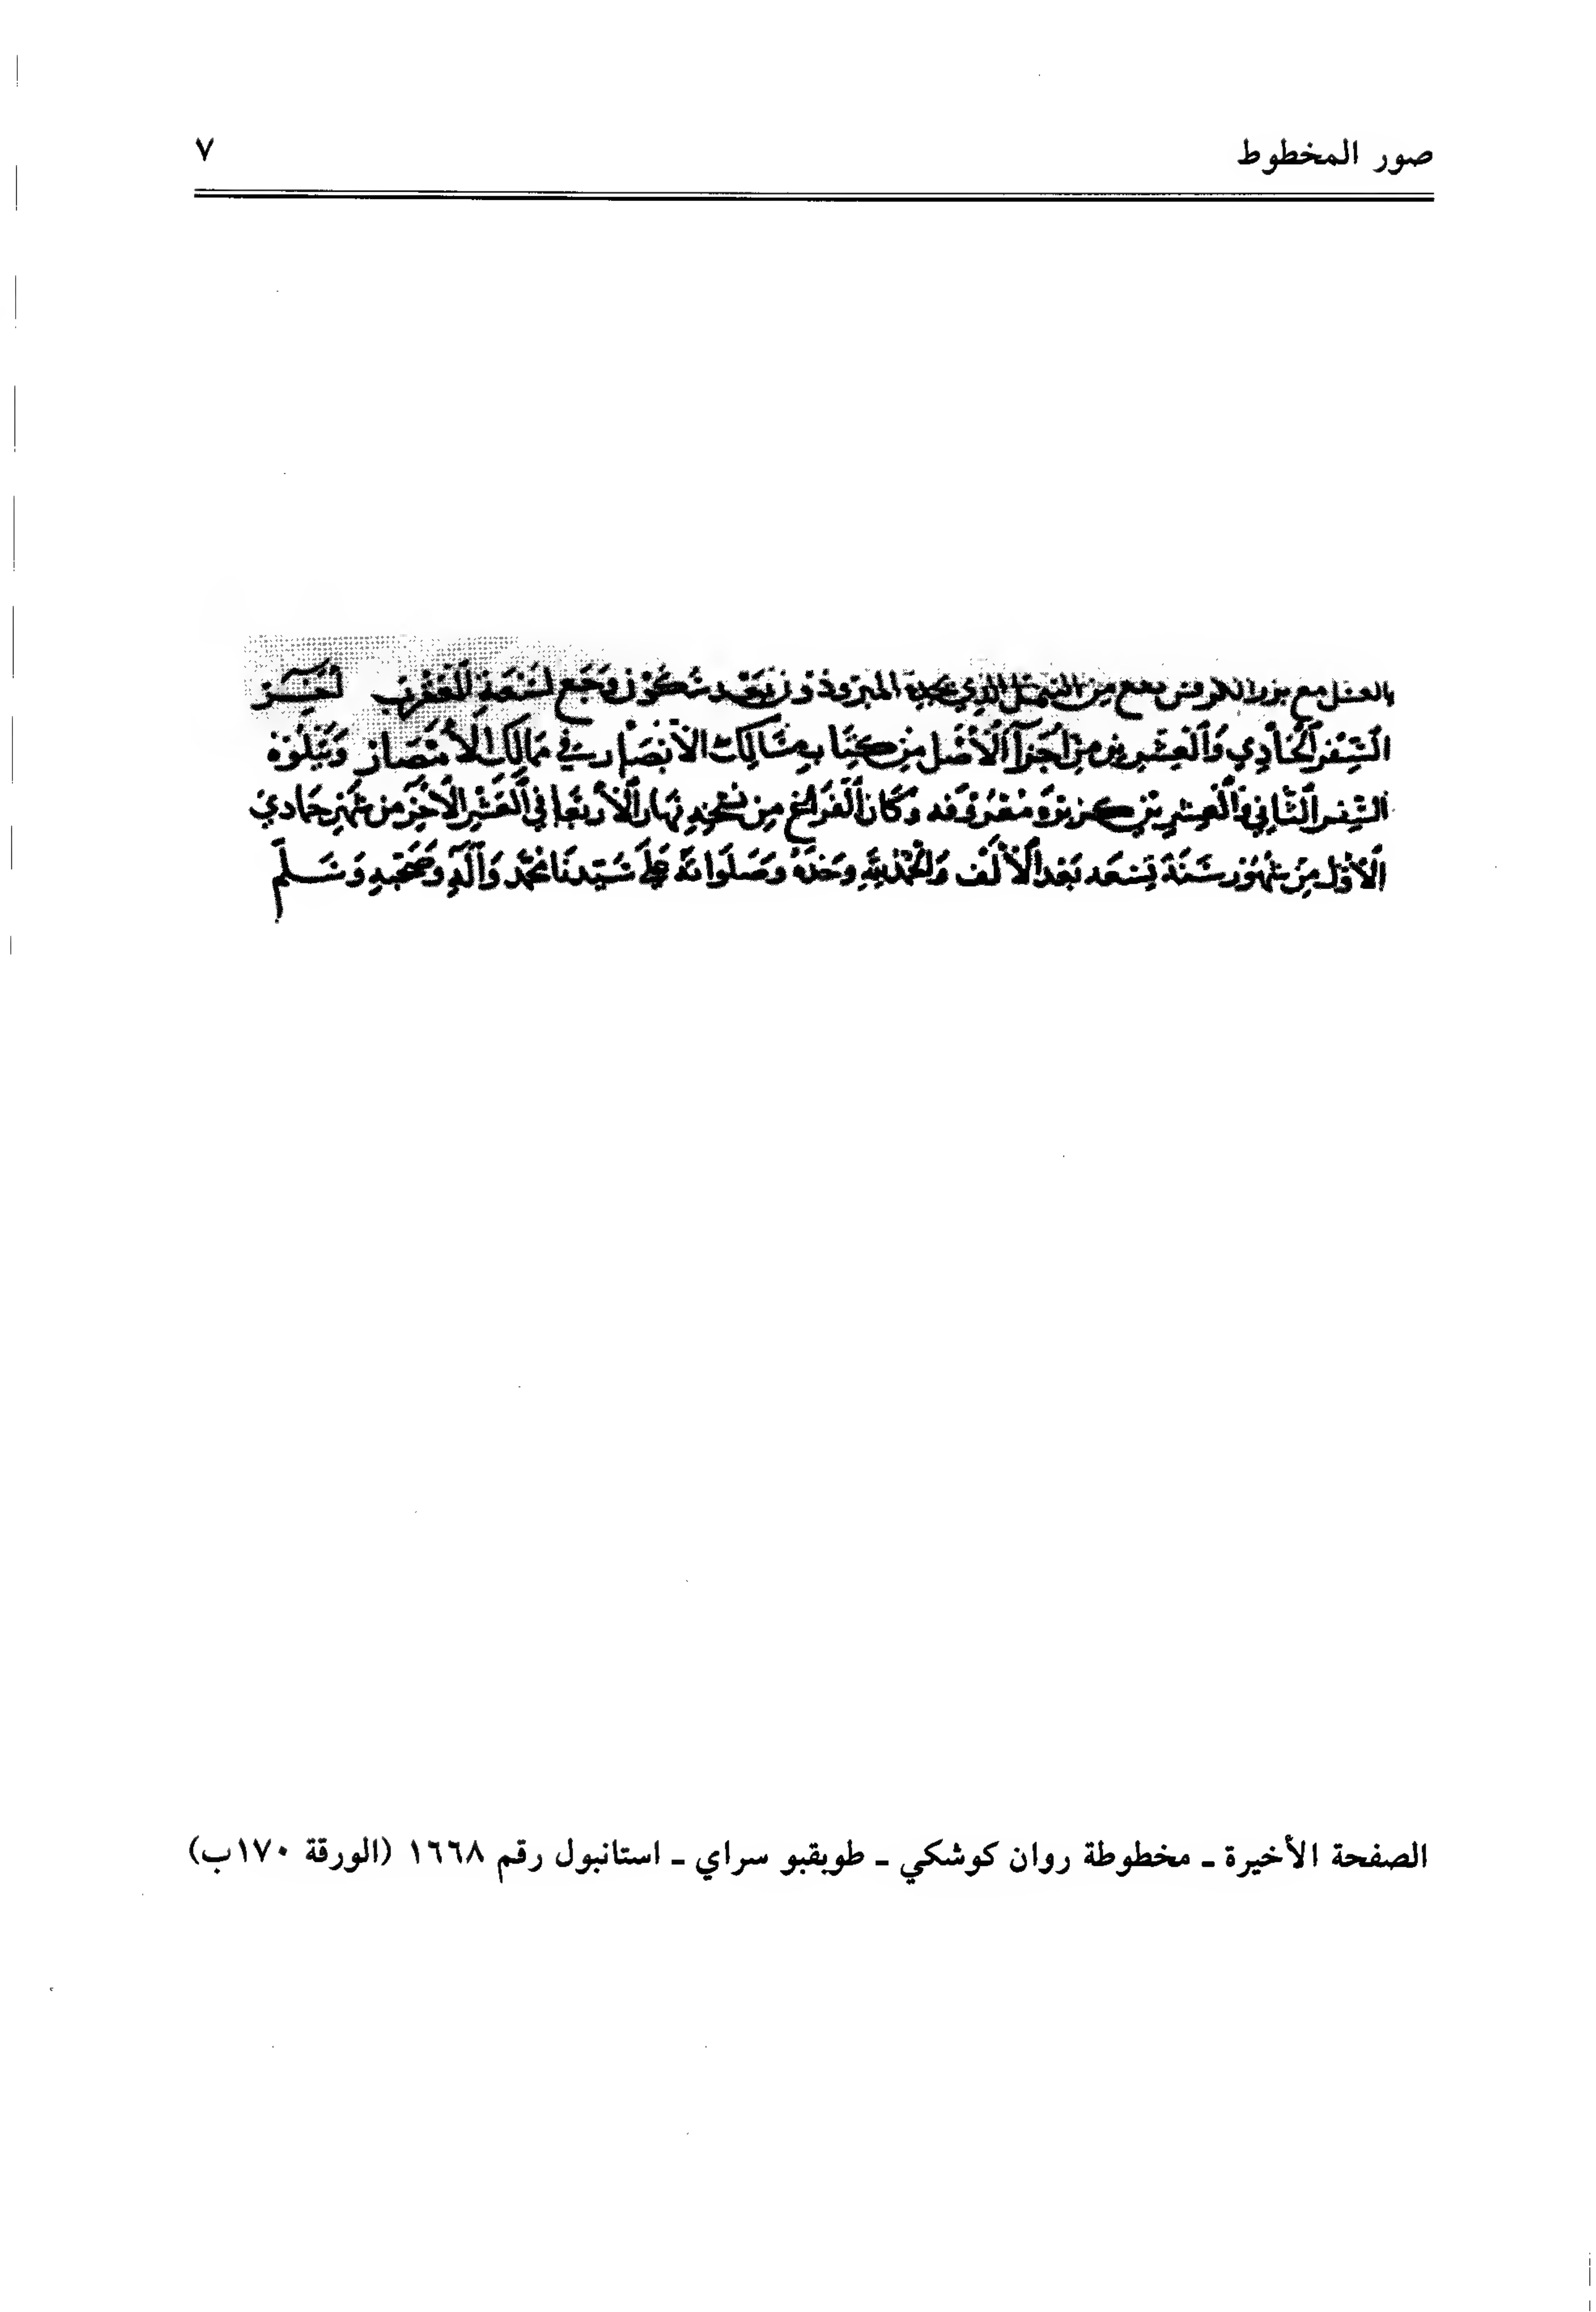 صور المخطوط
٧
بالعسل مع بزر الكرفس نفع من الذي دون بعد سكون وجع لسعة العقرب آخر
السِّفْر الحَادِي وَالعِشرين من أجزآ الأصْل مِن كِتَاب مسَالِك الأبْصَار في ممَالِك الأمْصَار وَيَتْلُوْهُ
السِّفر الثَّانِي وَالعِشرِيْن كزبرة وَكَان الفَراغ مِن نَسْخِهِ نَهَار الأَرْبَعَا فِي العَشْرِ الأَخِرْ مِن شَهْرِ جمَادِي
الأوَّل مِن شُهُوْر سَنَة تِسْعَه بَعْدَ الأَلْف وَالحَمْدُ لِلَّهِ وَحْدَهُ وَصَلَوَاتهُ عَلَى سَيّدنَا مُحَمَّد وَآلِهِ وَصَحْبِهِ وَسَلَّم
الصفحة الأخيرة ـ مخطوطة روان كوشكي ـ طوبقبو سراي ـ استانبول رقم ١٦٦٨ (الورقة ١٧٠ب)